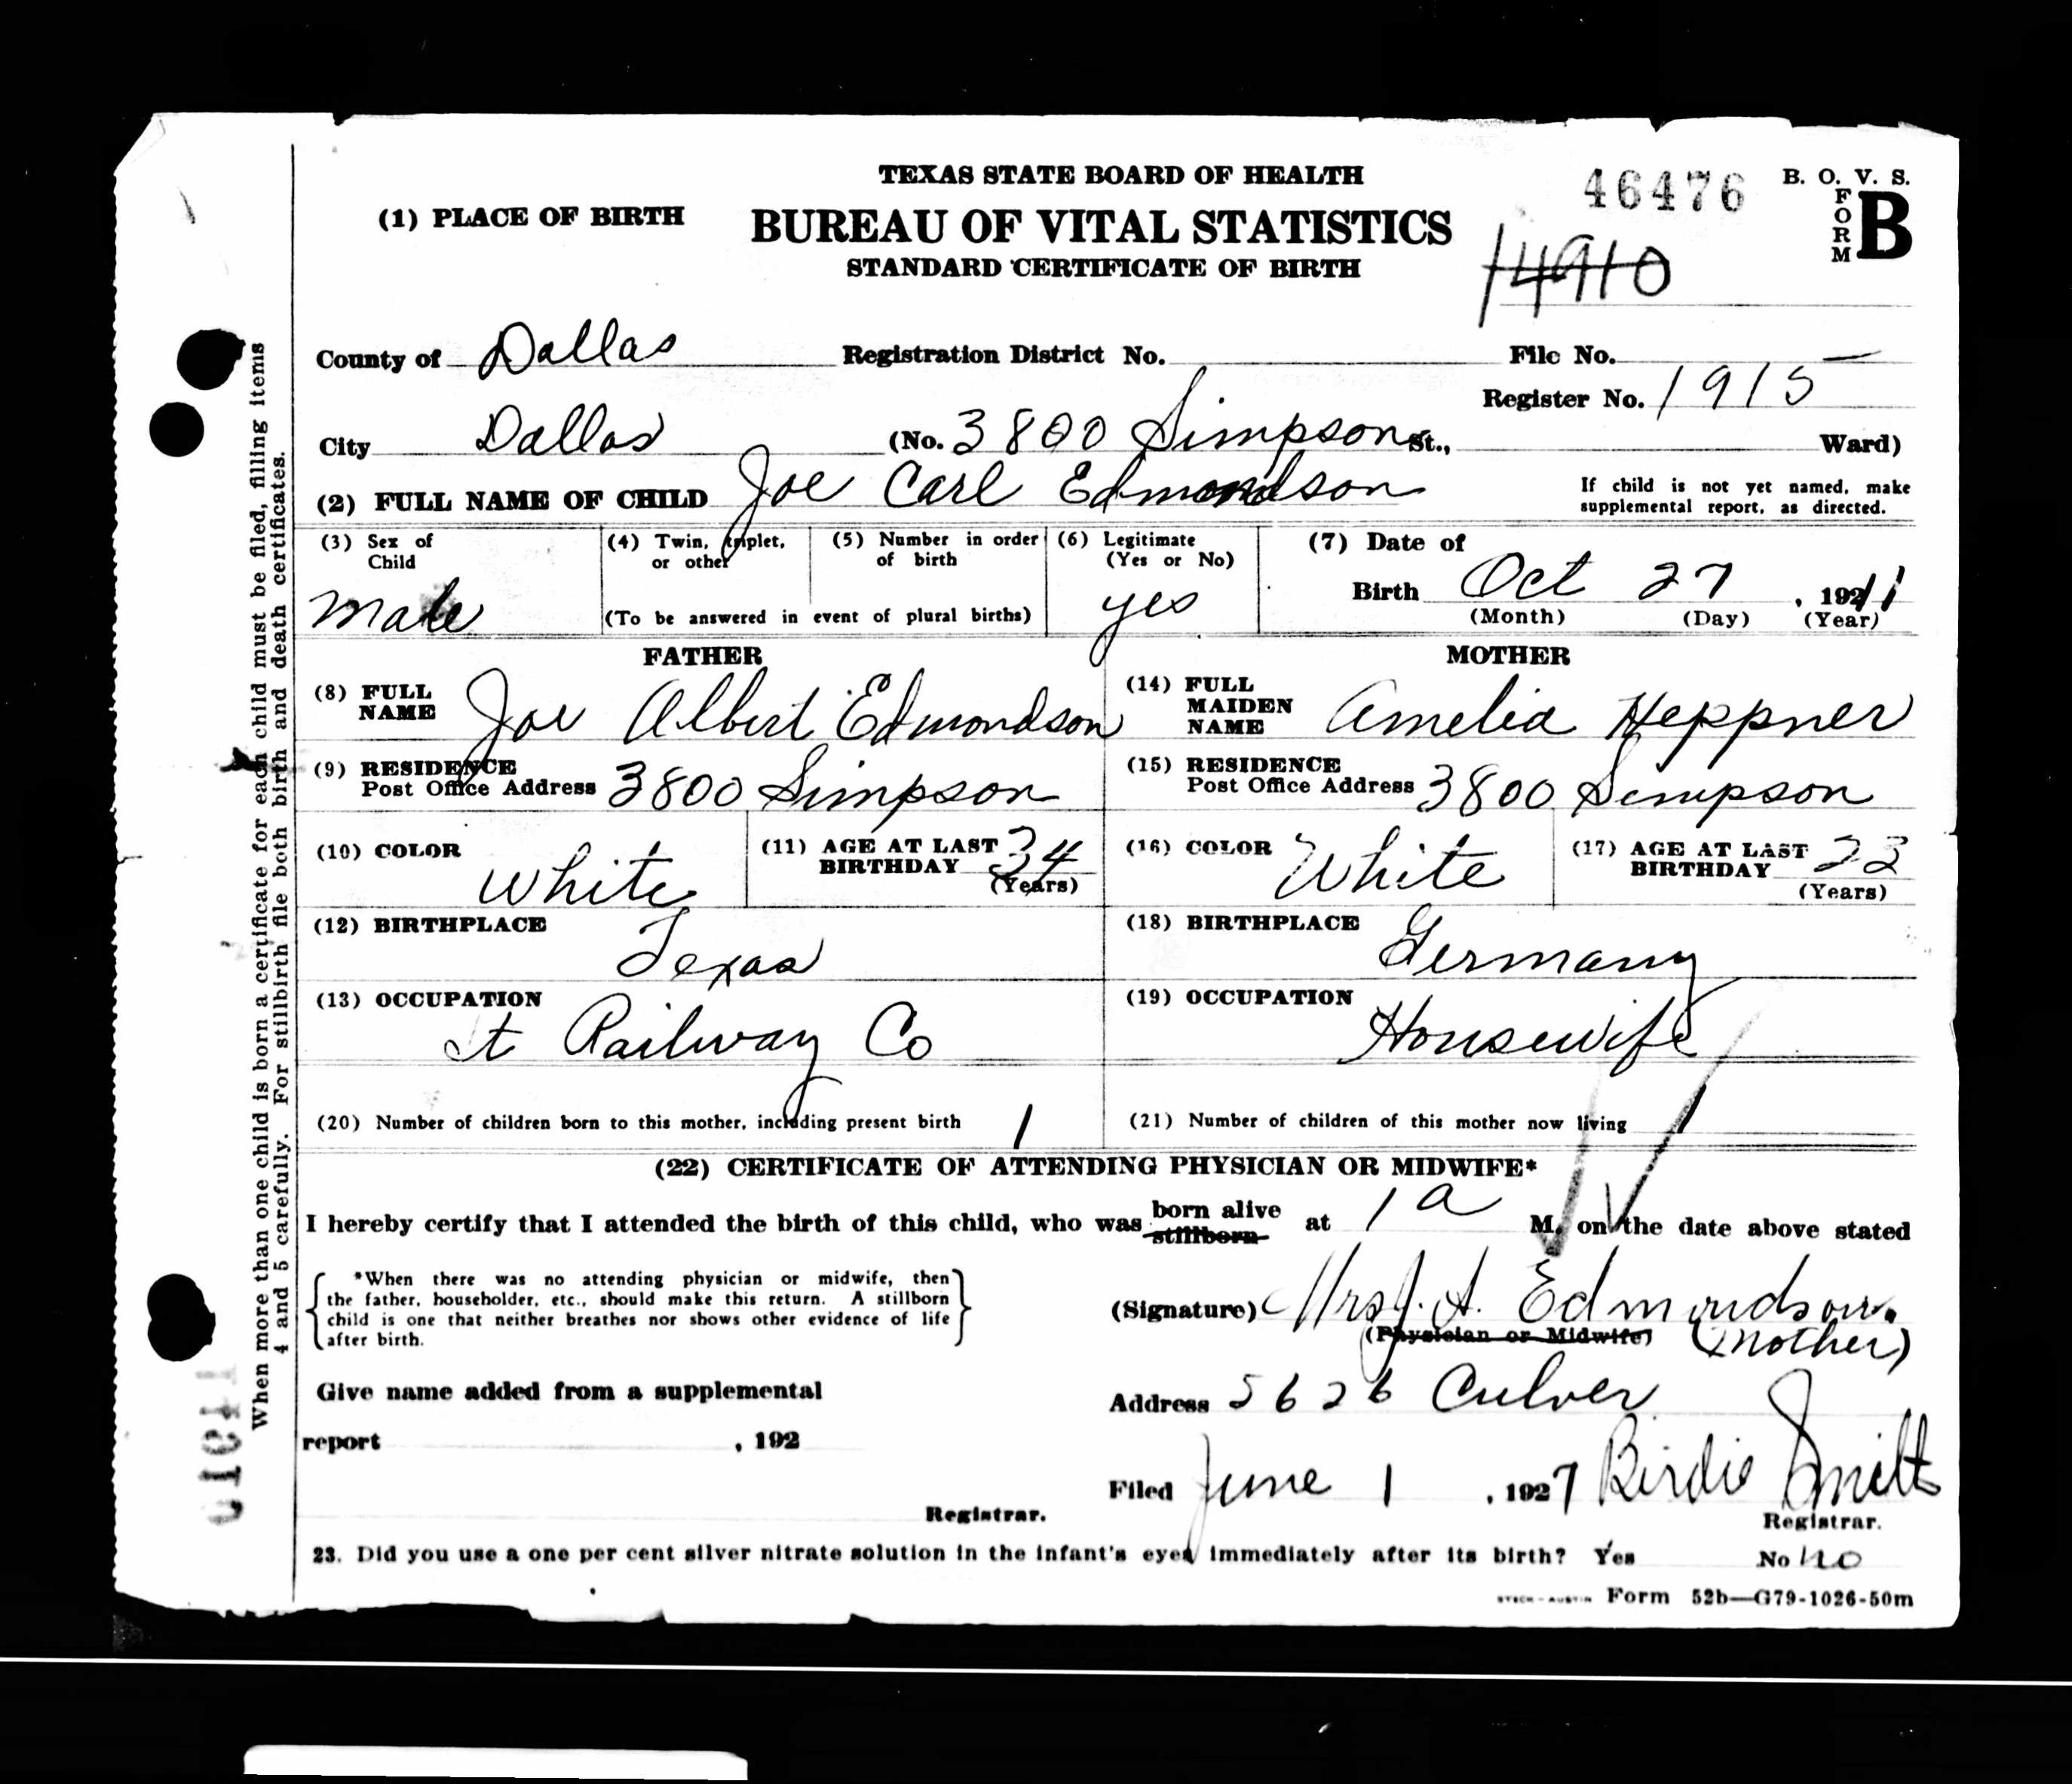 TEXAS STATE BOARD OF HEALTH
46476
B. O. V. S.
FORM B
(1) PLACE OF BIRTH
BUREAU OF VITAL STATISTICS
STANDARD CERTIFICATE OF BIRTH
14910
County of Dallas Registration District No. File No. —
Register No. 1915
City Dallas (No. 3800 Simpson St., Ward)
(2) FULL NAME OF CHILD Joe Carl Edmondson
If child is not yet named, make
supplemental report, as directed.
(3) Sex of Child
Male
(4) Twin, triplet, or other
(5) Number in order of birth
(To be answered in event of plural births)
(6) Legitimate (Yes or No)
yes
(7) Date of
Birth Oct 27, 1911
(Month) (Day) (Year)
FATHER
MOTHER
(8) FULL NAME Joe Albert Edmondson
(14) FULL MAIDEN NAME Amelia Heppner
(9) RESIDENCE
Post Office Address 3800 Simpson
(15) RESIDENCE
Post Office Address 3800 Simpson
(10) COLOR White
(11) AGE AT LAST BIRTHDAY 34 (Years)
(16) COLOR White
(17) AGE AT LAST BIRTHDAY 23 (Years)
(12) BIRTHPLACE Texas
(18) BIRTHPLACE Germany
(13) OCCUPATION St Railway Co
(19) OCCUPATION Housewife
(20) Number of children born to this mother, including present birth 1
(21) Number of children of this mother now living 1
(22) CERTIFICATE OF ATTENDING PHYSICIAN OR MIDWIFE*
I hereby certify that I attended the birth of this child, who was born alive stillborn at 1 a M. on the date above stated
*When there was no attending physician or midwife, then
the father, householder, etc., should make this return. A stillborn
child is one that neither breathes nor shows other evidence of life
after birth.
(Signature) Mrs J. A. Edmondson.
(Physician or Midwife) (Mother)
Give name added from a supplemental
report , 192
Registrar.
Address 5626 Culver
Filed June 1, 1927 Birdie Smith
Registrar.
23. Did you use a one per cent silver nitrate solution in the infant's eyes immediately after its birth? Yes No no
STECK-AUSTIN Form 52b—G79-1026-50m
When more than one child is born a certificate for each child must be filed, filling items
4 and 5 carefully. For stillbirth file both birth and death certificates.